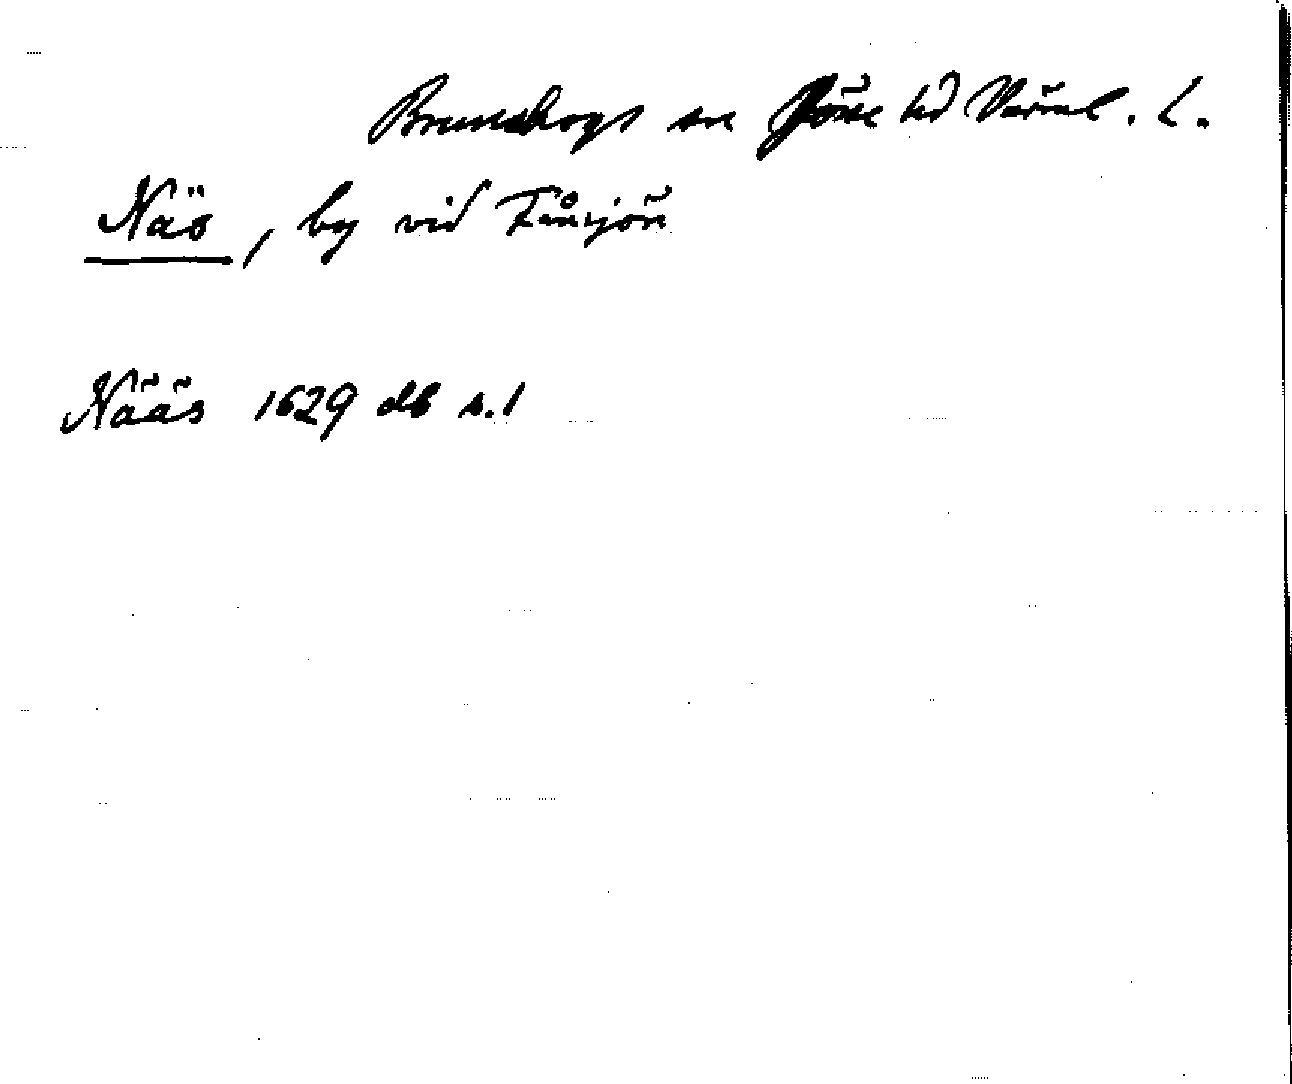 Brunskogs sn Jösse hd Värml. l.
Näs, by vid Tånsjön
Nääs 1629 db s. 1